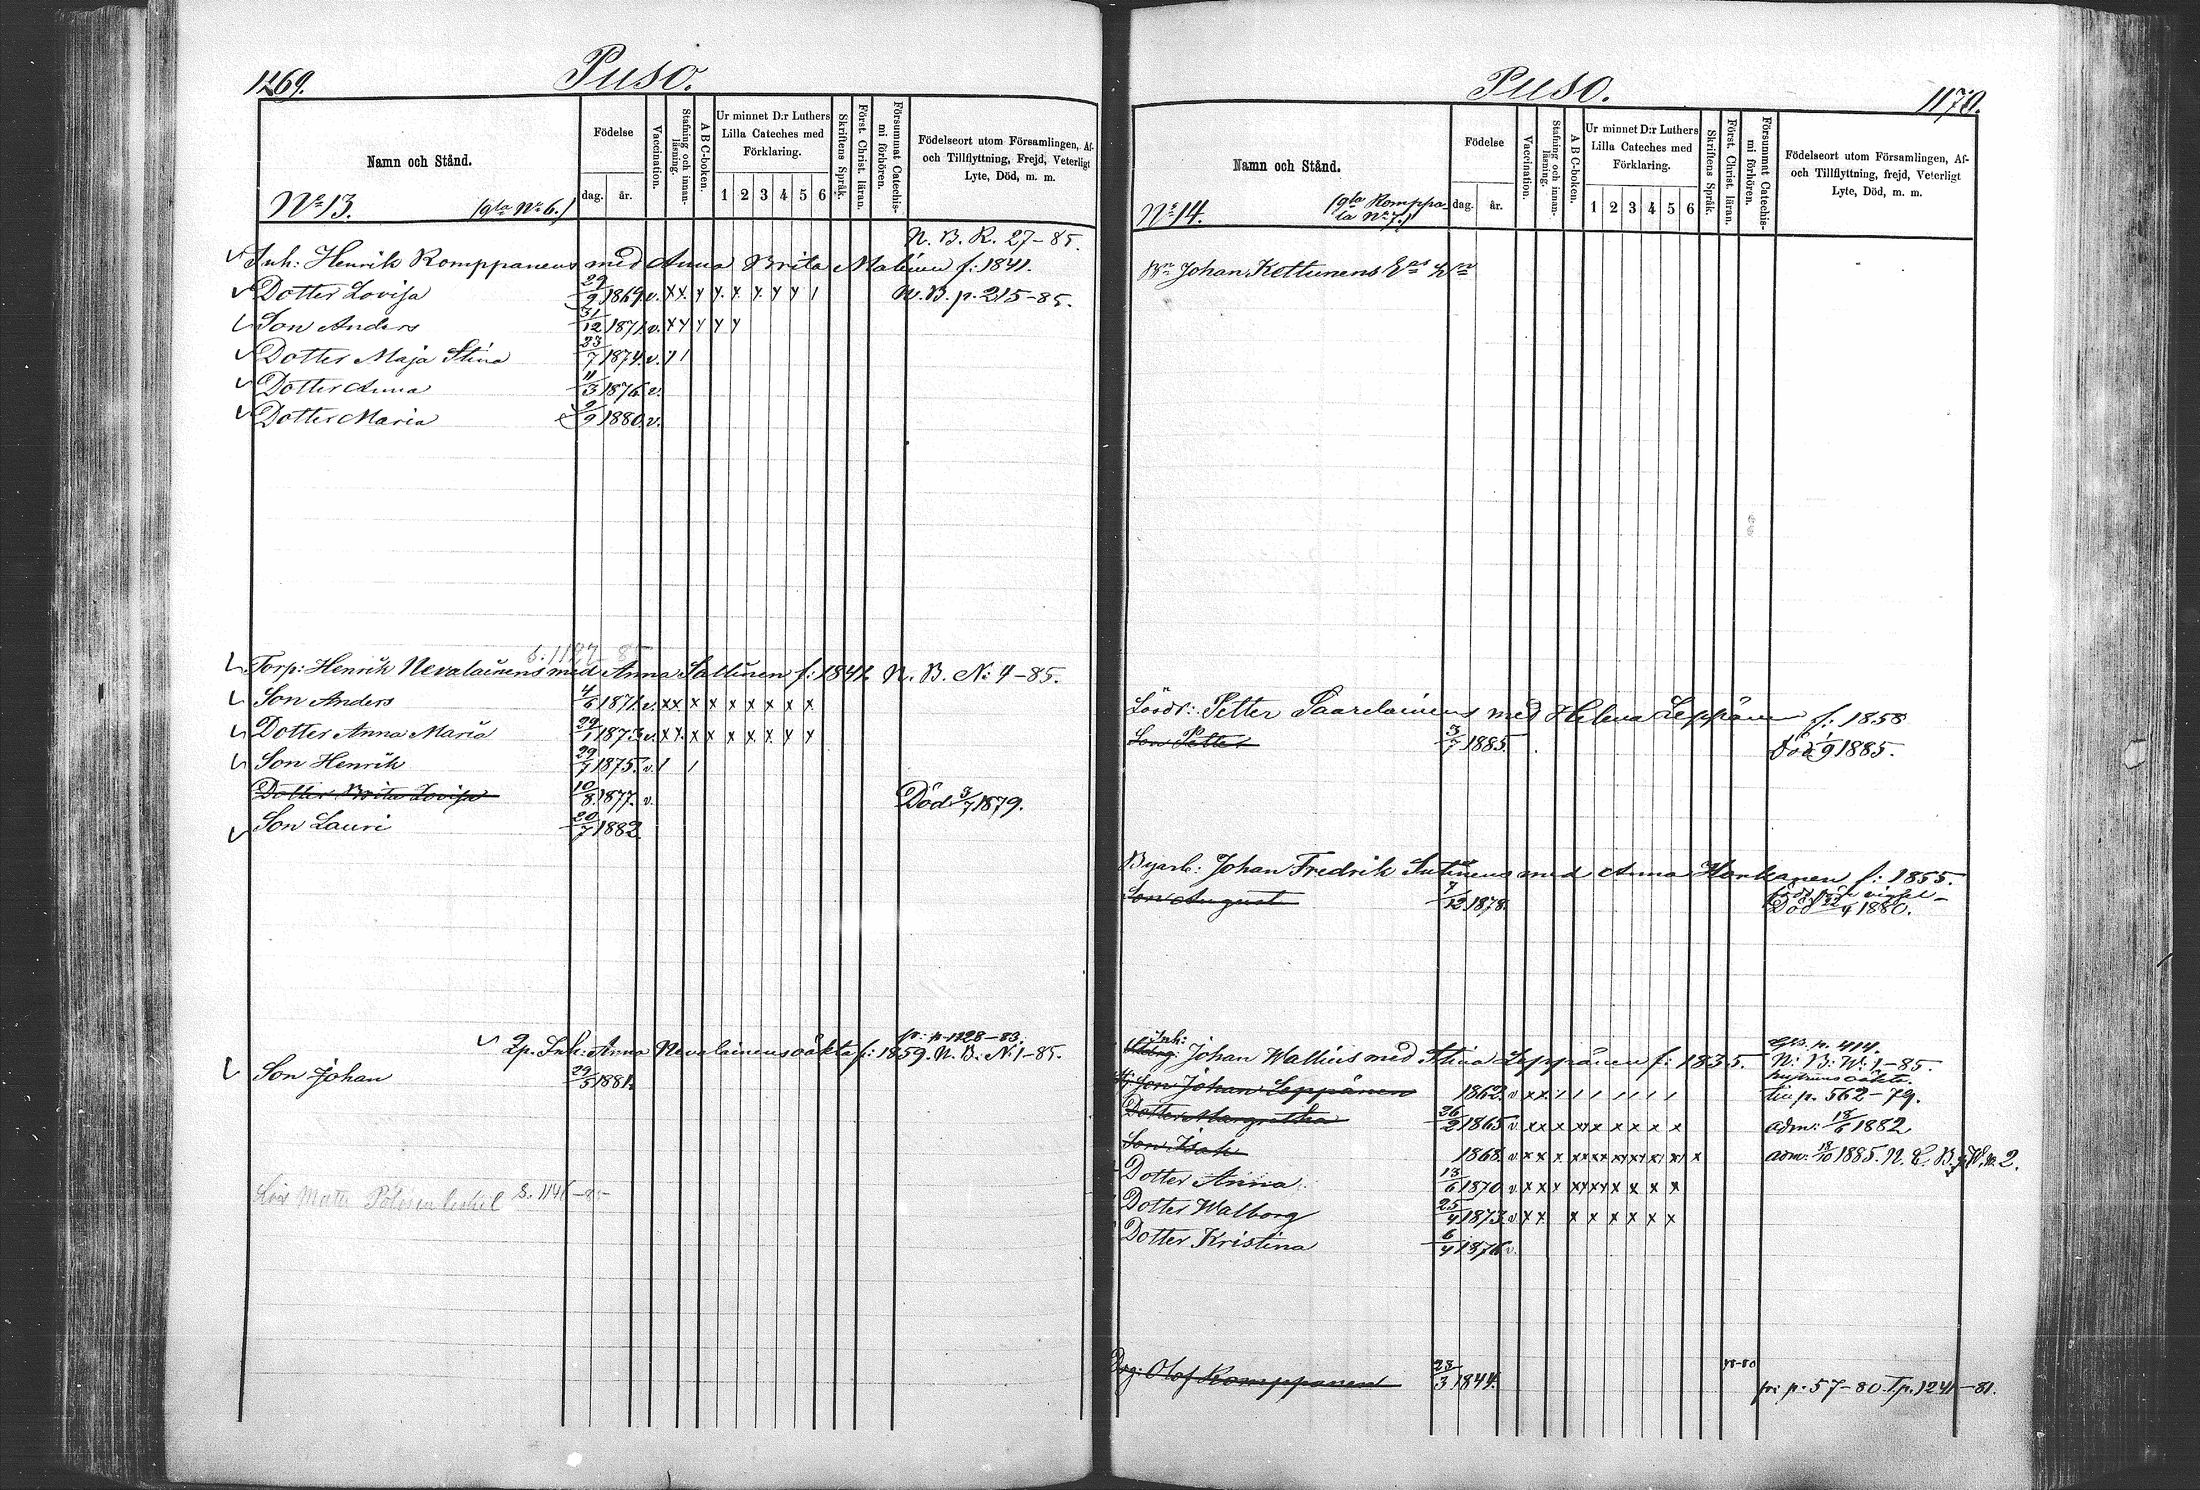 1269.
Puso.
Namn och Stånd.
Födelse
dag.
år.
Vaccination.
Stafning och innanläsning.
A B C-boken.
Ur minnet D:r Luthers
Lilla Cateches med
Förklaring.
1 2 3 4 5 6
Skriftens Språk.
Först. Christ. läran.
Försummat Catechismi förhören.
Födelseort utom Församlingen, Af-
och Tillflyttning, Frejd, Veterligt
Lyte, Död, m. m.
No 13. (gla No 6.)
N. B. R. 27-85.
Inh: Henrik Romppanens med Anna Brita Malinen f: 1841.
Dotter Lovisa 29/9 1869 v. N. B. p. 215-85.
Son Anders 31/12 1871 v.
Dotter Maja Stina 23/7 1874 v.
Dotter Anna 11/3 1876 v.
Dotter Maria 2/9 1880 v.
Torp: Henrik Nevalainens med Anna Sallinen f: 1841. N. B. N: 4-85.
Son Anders 4/6 1871 v.
Dotter Anna Maria 29/1 1873 v.
Son Henrik 29/7 1875 v.
Dotter Brita Lovisa 10/8 1877 v. Död 3/7 1879.
Son Lauri 20/7 1882
fr: p. 1128-83.
Lp. Inh: Anna Nevalainens oäkta f: 1859. N. B. N: 1-85.
Son Johan 29/5 1881.
Puso.
1170.
Namn och Stånd.
Födelse
dag.
år.
Vaccination.
Stafning och innanläsning.
A B C-boken.
Ur minnet D:r Luthers
Lilla Cateches med
Förklaring.
1 2 3 4 5 6
Skriftens Språk.
Först. Christ. läran.
Försummat Catechismi förhören.
Födelseort utom Församlingen, Af-
och Tillflyttning, frejd, Veterligt
Lyte, Död, m. m.
No 14. (gla Komppa-
la No 7.)
Bn Johan Kettunens
Lösdr: Petter Saarelainens med Helena Leppänen f: 1858
Son Petter 3/7 1885. Död 1/9 1885.
Byarb: Johan Fredrik Sutinens med Anna Honkanen f: 1855.
Son August 7/12 1878. Död 22/4 1880.
Inh:
Johan Wallius med Stina Leppänen f: 1835. N: B: W: 1-85.
Son Johan Leppänen 1862. v p. 562-79.
Dotter Margretha 26/2 1865 v adm: 18/6 1882
Son Isak 1868. v adm: 18/10 1885.
Dotter Anna 13/6 1870 v
Dotter Walborg 25/4 1873 v
Dotter Kristina 6/4 1876 v.
78-80
Drg: Olof Romppanen 23/3 1844. fr: p: 57-80. T.p. 1241-81.